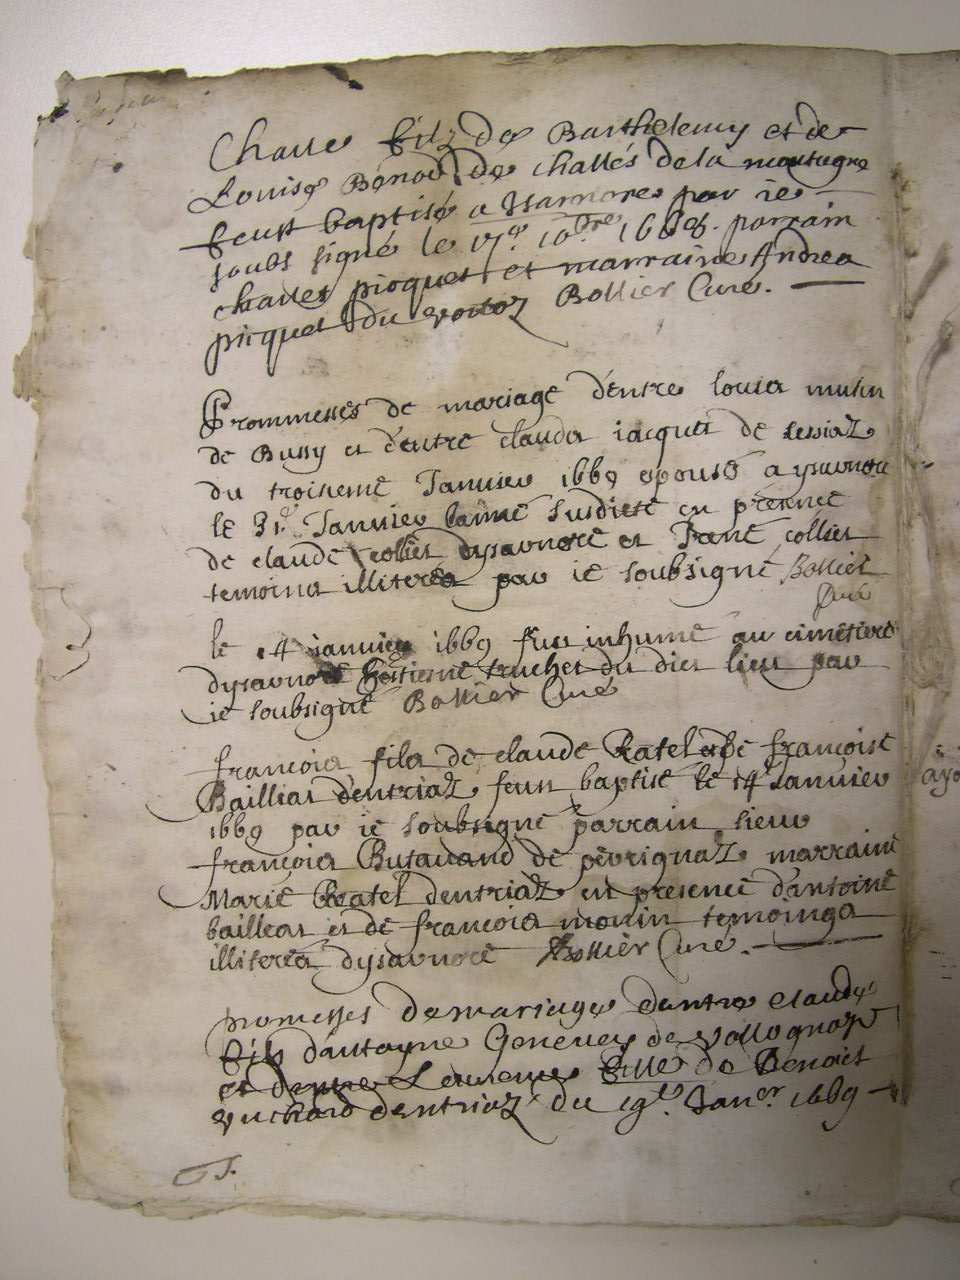 Charle filz de Barthelemy et de
Louise Bonod de challes de la montagne
feust baptisé a Isarnore par ie
soubs signé le 17e 10bre 1668. parrain
charles picquet et marraine Andrea
picquet du Bollier Curé.
Prommesses de mariage d'entre louis mutin
de Bussy et d'entre clauda iacquet de lessiaz
du troisieme Janvier 1669 epousé a ysarnore
le 31e Janvier lanné susdiete en presence
de claude collet dysarnore et collet
temoins illiteres par ie soubsigné Bollier
Curé
le 14 ianvier 1669 fus inhumé au cimetiere
dysarnore truchet du diet lieu par
ie soubsigné Bollier Curé
francois fils de claude Ratel et de françoise
Baillias d'entriaz feust baptisé le 14 Janvier
1669 par ie soubsigné parrain sieur
françois Butavand de peyrignaz marraine
Marie Ratel dentriaz en presence d'antoine
baillias et de francois monin temoings
illiteres dysarnore Bollier Curé.
promesses de mariage dentre claude
fils d'antoyne Genevey de vollognaz
et dentre Laurence fille de Benoict
vuchard dentriaz du 19e Janer 1669